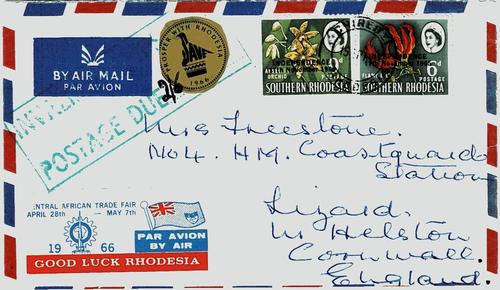 BY AIR MAIL
PAR AVION
PROSPER WITH RHODESIA
1966
2/6
INDEPENDENCE
11th November 1965
ORCHID
SOUTHERN RHODESIA
6d
POSTAGE
SOUTHERN RHODESIA
POSTAGE DUE
Mrs Freestone.
No 4. H.M. Coastguard
Station
Lizard.
Nr Helston
Cornwall.
England.
CENTRAL AFRICAN TRADE FAIR
APRIL 28th — MAY 7th
1966
PAR AVION
BY AIR
GOOD LUCK RHODESIA